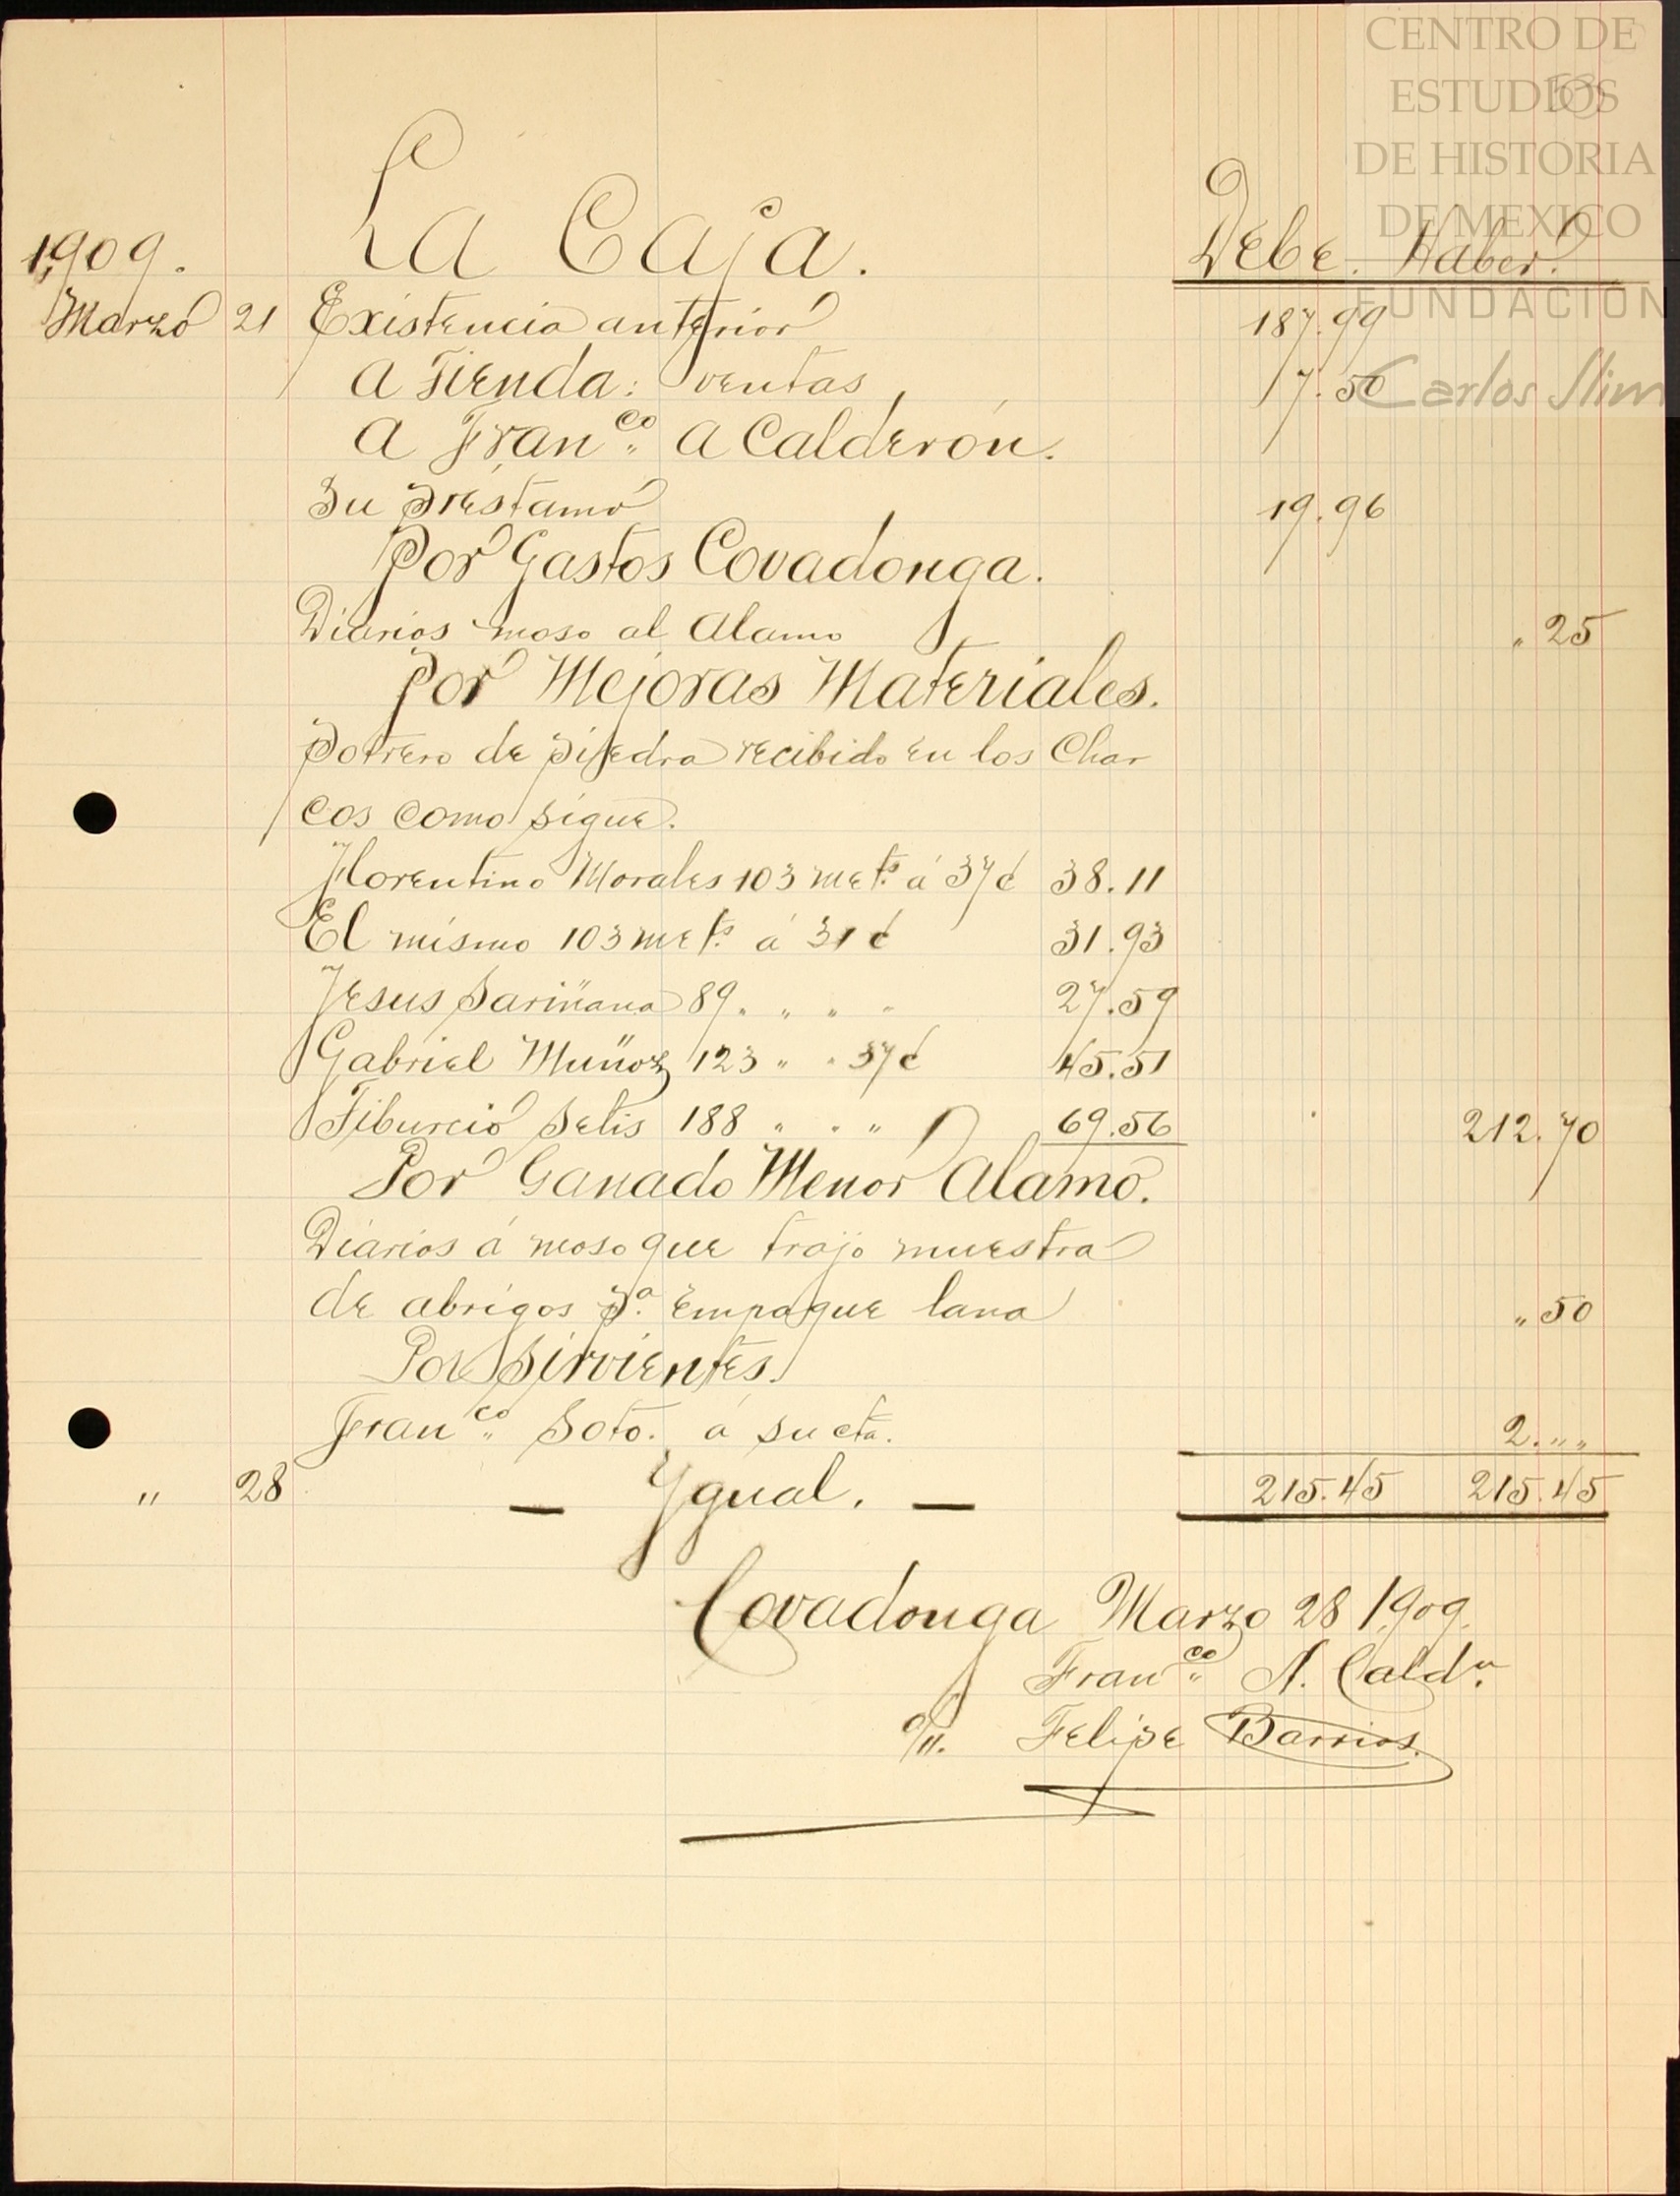 CENTRO DE
ESTUDIOS
DE HISTORIA
DE MEXICO
FUNDACION
Carlos Slim
1909. La Caja. Debe. Haber.
Marzo 21 Existencia anterior 187.99
A Tienda: ventas 7.50
A Franco. A Calderón.
Su préstamo 19.96
Por Gastos Covadonga.
Diarios moso al Alamo " 25
Por Mejoras Materiales.
Potrero de piedra recibido en los Char
cos como sigue.
Florentino Morales 103 mets. á 37¢ 38.11
El mismo 103 mets. á 31¢ 31.93
Jesus Sariñana 89 " " " " 27.59
Gabriel Muñoz 123 " " 37¢ 45.51
Tiburcio Selis 188 " " " 69.56 212.70
Por Ganado Menor Alamo.
Diarios á moso que trajo muestra
de abrigos pa. empaque lana " 50
Por Sirvientes.
Franco. Soto. á su cta. 2. " "
" 28 — Ygual. — 215.45 215.45
Covadonga Marzo 28 1909.
Franco. A. Caldn.
Felipe Barrios.